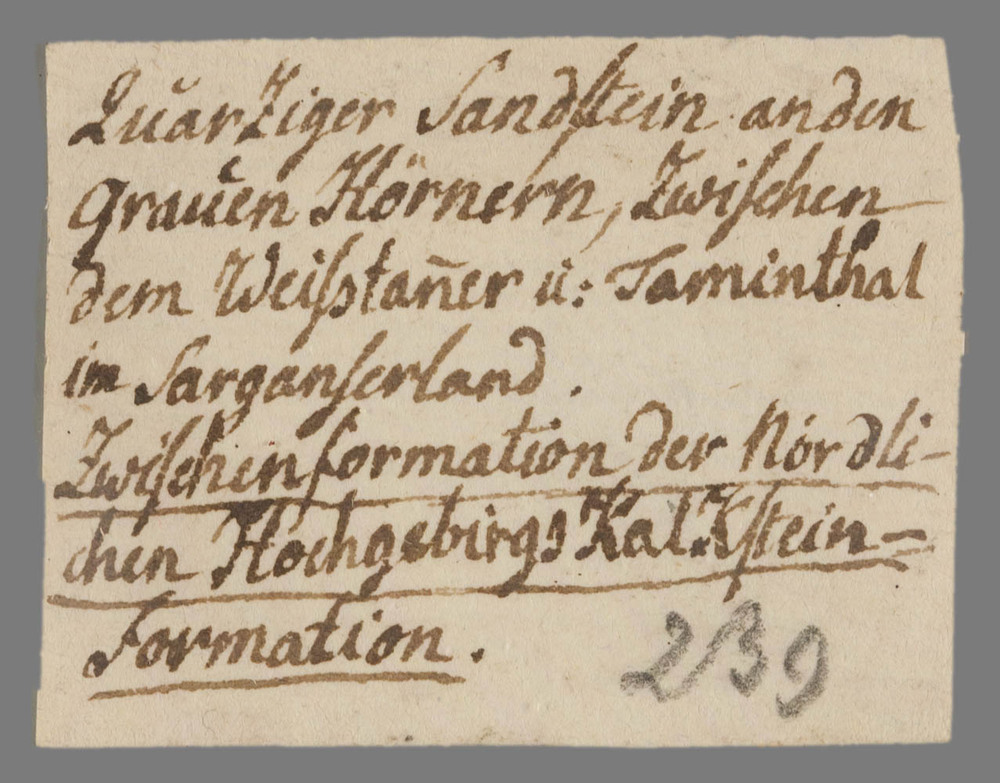 Quarziger Sandstein an den
grauen Hörnern, Zwischen
dem Weißtan̄er u: Taminthal
im Sarganserland.
Zwischenformation der Nördli-
chen HochgebirgsKalKstein-
Formation.
239